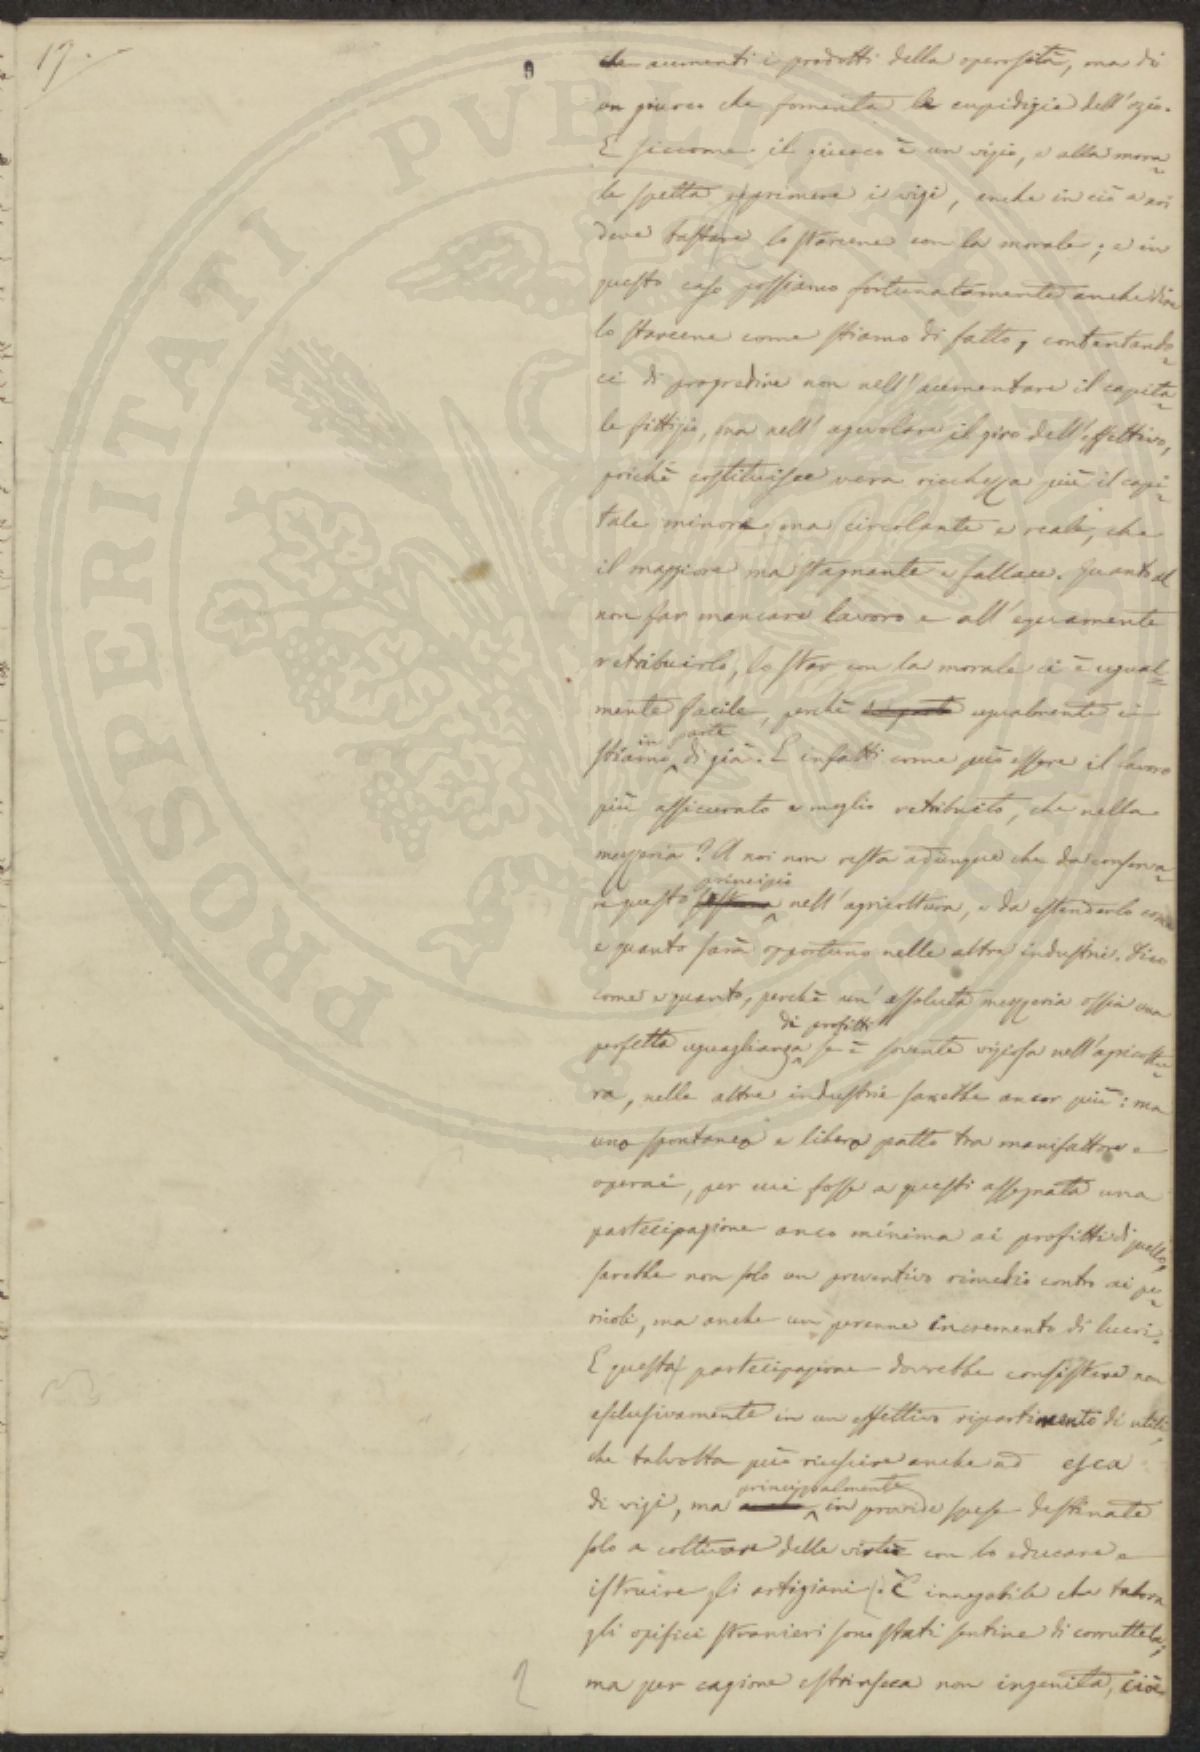 17.
che aumenti i prodotti della operosità, ma di
un giuoco che fomenta le cupidigie dell'ozio.
E siccome il giuoco è un vizio, e alla mora=
le spetta reprimere i vizi, anche in ciò a noi
deve bastare lo starcene con la morale; e in
questo caso possiamo fortunatamente anche dire
lo starcene come stiamo di fatto, contentando=
ci di progredire non nell'aumentare il capita=
le fittizio, ma nell'agevolare il giro dell'effettivo,
poichè costituisce vera ricchezza più il capi=
tale minore ma circolante e reale, che
il maggiore ma stagnante e fallace. Quanto al
non far mancare lavoro e all'equamente
retribuirlo, lo star con la morale ci è ugual=
mente facile, perchè ugualmente ci
stiamo in parte di già. E infatti come può essere il lavoro
più assicurato e meglio retribuito, che nella
mezzeria? A noi non resta adunque che da conserva=
re questo principio nell'agricoltura, e da estenderlo come
e quanto sarà opportuno nelle altre industrie. Dico
come e quanto, perchè un'assoluta mezzeria ossia una
perfetta uguaglianza di profitti se è sovente viziosa nell'agricoltu=
ra, nelle altre industrie sarebbe ancor più: ma
uno spontaneo e libero patto tra manifattore e
operai, per cui fosse a questi assegnata una
partecipazione anco minima ai profitti di quello,
sarebbe non solo un preventivo rimedio contro ai pe=
ricoli, ma anche un perenne incremento di lucri.
E questa partecipazione dovrebbe consistere non
esclusivamente in un effettivo ripartimento di utili,
che talvolta può riuscire anche ad esca
di vizi, ma principalmente in provvide spese destinate
solo a coltivare delle virtù con lo educare e
istruire gli artigiani. È innegabile che talora
gli opifici stranieri sono stati sentine di corruttela;
ma per cagione estrinseca non ingenita, cioè
PROSPERITATI PVBLICAE